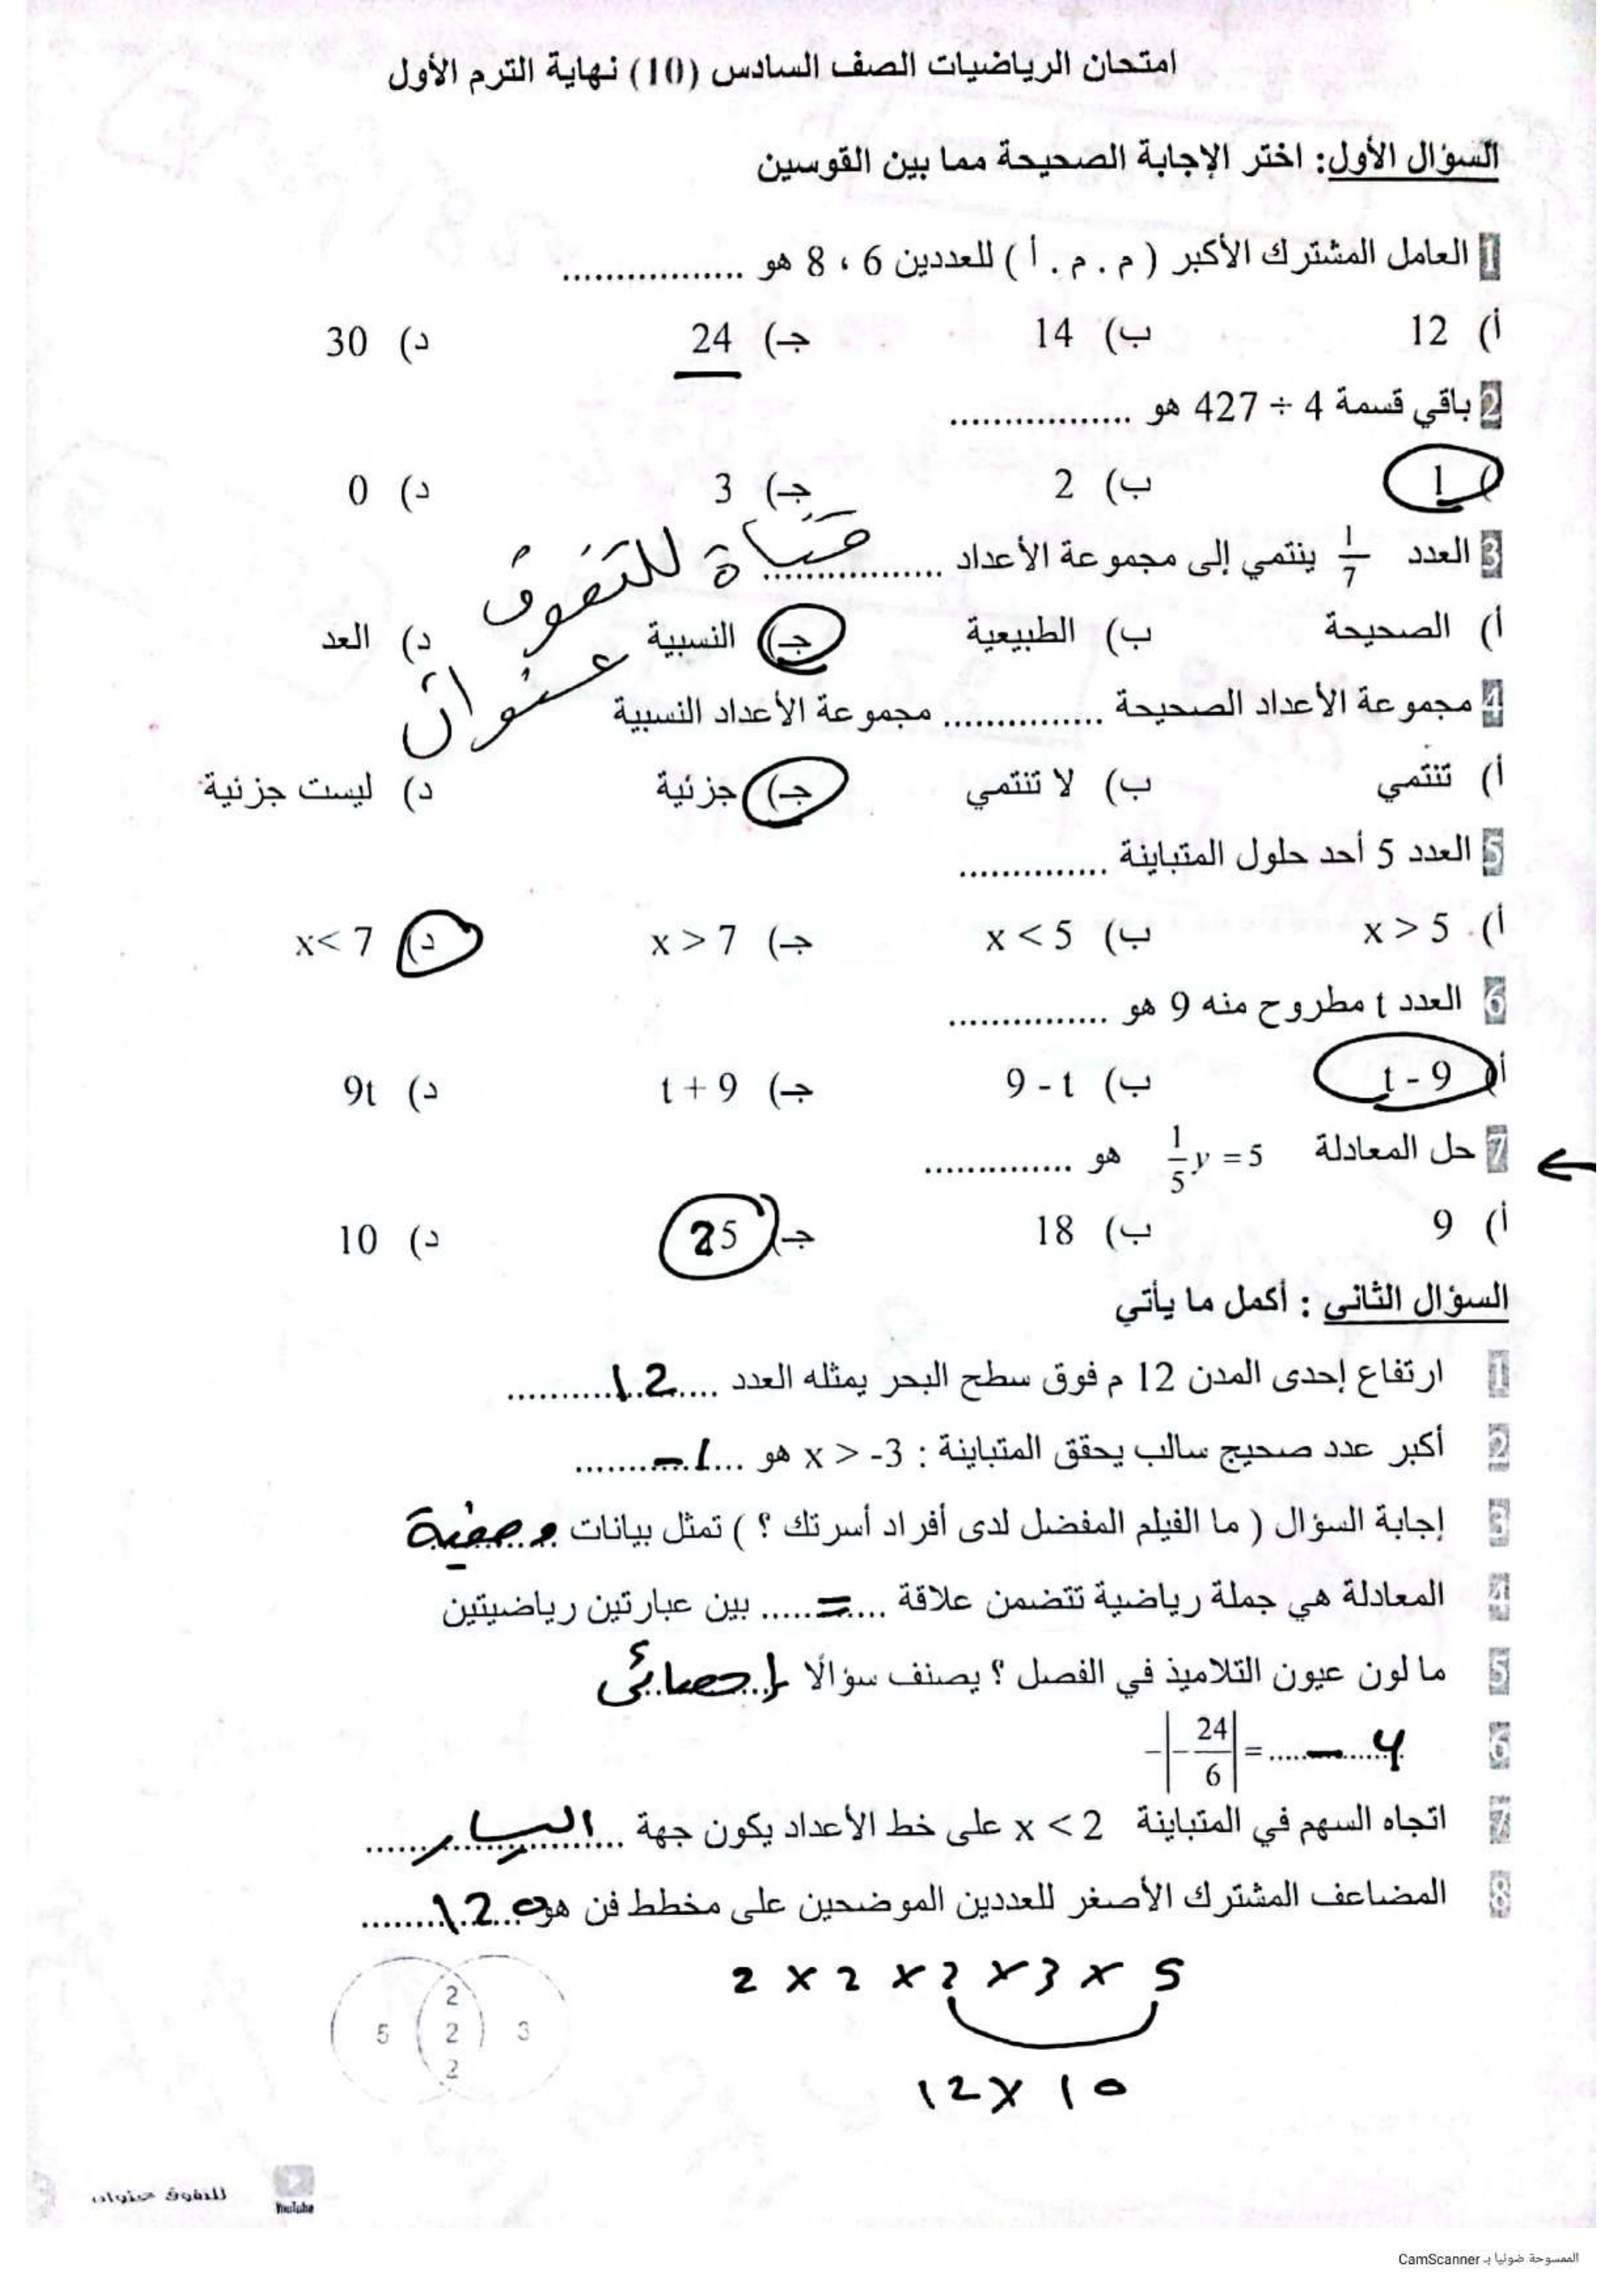 امتحان الرياضيات الصف السادس (10) نهاية الترم الأول
السؤال الأول: اختر الإجابة الصحيحة مما بين القوسين
1 العامل المشترك الأكبر ( م . م . أ ) للعددين 6 ، 8 هو .................
أ) 12 ب) 14 جـ) 24 د) 30
2 باقي قسمة 4 ÷ 427 هو .................
أ) 1 ب) 2 جـ) 3 د) 0
3 العدد 1/7 ينتمي إلى مجموعة الأعداد .................
قناة للتفوق
عنوان
أ) الصحيحة ب) الطبيعية جـ) النسبية د) العد
4 مجموعة الأعداد الصحيحة ............... مجموعة الأعداد النسبية
أ) تنتمي ب) لا تنتمي جـ) جزئية د) ليست جزئية
5 العدد 5 أحد حلول المتباينة ..............
أ) x > 5 ب) x < 5 جـ) x > 7 د) x< 7
6 العدد t مطروح منه 9 هو ...............
أ) t - 9 ب) 9 - t جـ) t + 9 د) 9t
7 حل المعادلة 1/5 y = 5 هو ..............
أ) 9 ب) 18 جـ) 25 د) 10
السؤال الثاني : أكمل ما يأتي
1 ارتفاع إحدى المدن 12 م فوق سطح البحر يمثله العدد ....12..........
2 أكبر عدد صحيح سالب يحقق المتباينة : x > -3 هو ...-1.........
3 إجابة السؤال ( ما الفيلم المفضل لدى أفراد أسرتك ؟ ) تمثل بيانات وصفية
4 المعادلة هي جملة رياضية تتضمن علاقة ....=..... بين عبارتين رياضيتين
5 ما لون عيون التلاميذ في الفصل ؟ يصنف سؤالًا إحصائى
6 -|-24/6| = ......-......4
7 اتجاه السهم في المتباينة x < 2 على خط الأعداد يكون جهة ...اليسار......
8 المضاعف المشترك الأصغر للعددين الموضحين على مخطط فن هو ...120........
2 x 2 x 2 x 3 x 5
5 2 2 2 3
12 x 10
للتفوق عنوان
YouTube
الممسوحة ضوئيا بـ CamScanner